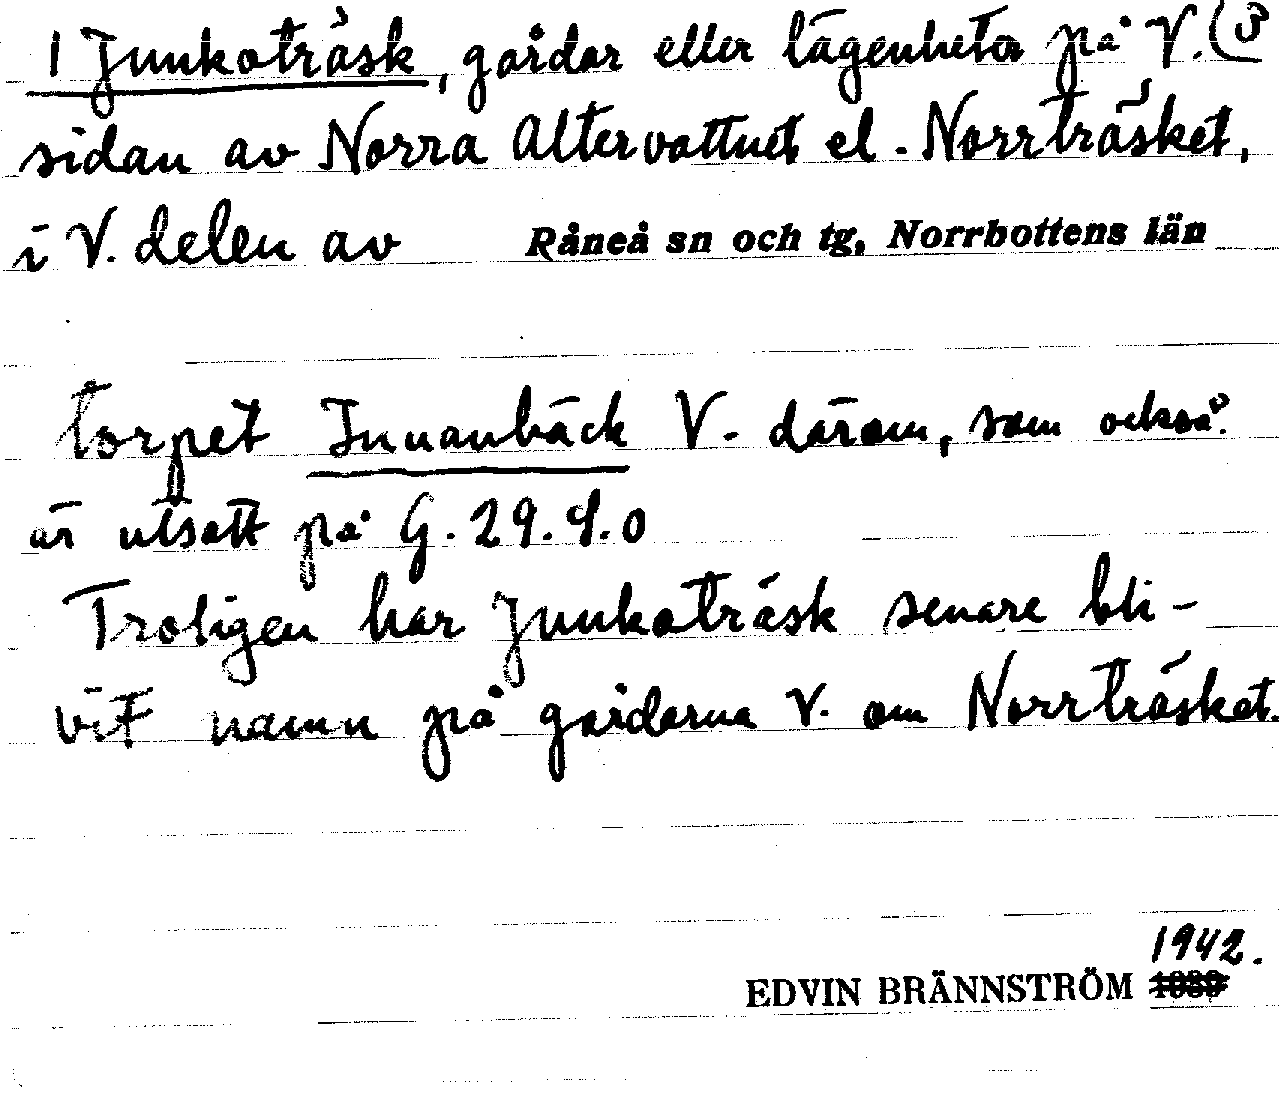 1 Junkoträsk, gårdar eller lägenheter på V. (3
sidan av Norra Altervattnet el. Norrträsket,
i V. delen av Råneå sn och tg, Norrbottens län
torpet Innanbäck V. därom, som också
är utsatt på G. 29.9.0
Troligen har Junkoträsk senare bli-
vit namn på gårdarna V. om Norrträsket.
1942.
EDVIN BRÄNNSTRÖM 1939